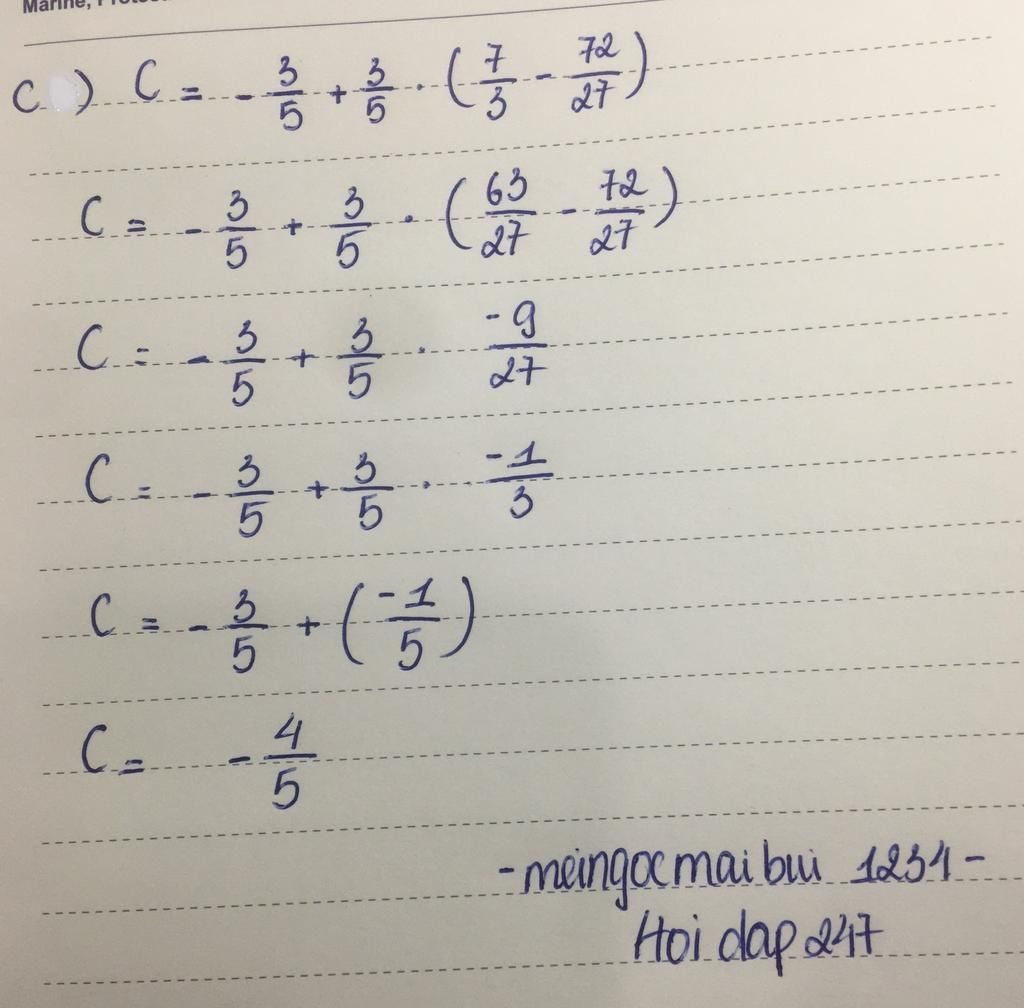 C ) C = - 3/5 + 3/5 . ( 7/3 - 72/27 )
C = - 3/5 + 3/5 . ( 63/27 - 72/27 )
C = - 3/5 + 3/5 . -9/27
C = - 3/5 + 3/5 . -1/3
C = - 3/5 + ( -1/5 )
C = - 4/5
- meingocmaibui 1234 -
Hoi dap 247